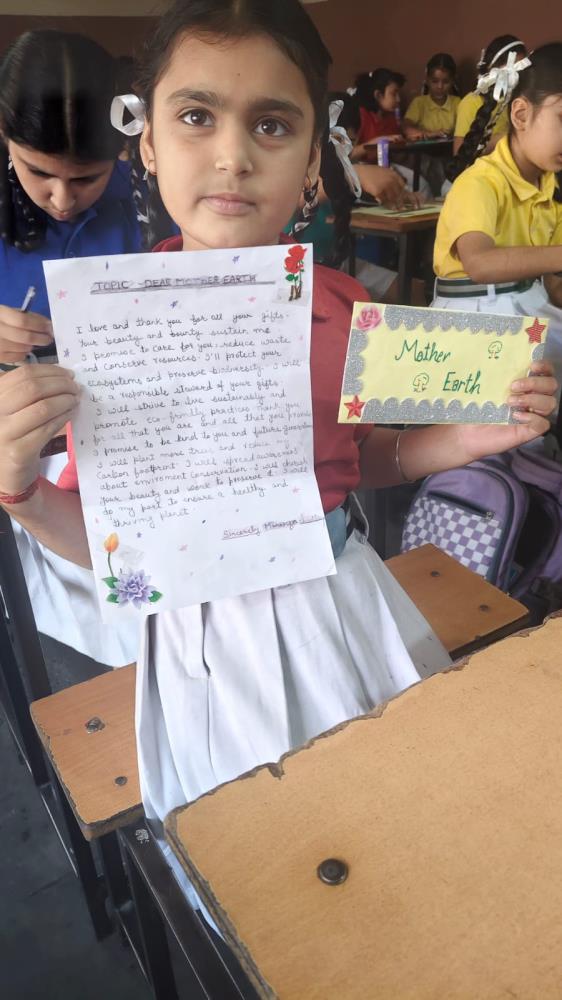 TOPIC - DEAR MOTHER EARTH
I love and thank you for all your gifts.
Your beauty and bounty sustain me
I promise to care for you, reduce waste
and conserve resources. I'll protect your
ecosystems and preserve biodiversity. I will
be a responsible steward of your gifts.
I will strive to live sustainably and
promote eco friendly practices Thank you
for all that you are and all that you provide
I promise to be kind to you and future generation
I will plant more trees and reduce my
Carbon footprint. I will spread awareness
about enviroment conservation. I will cherish
your beauty and work to preserve it. I will
do my part to ensure a healthy and
thriving planet.
Sincerity
Mother
Earth